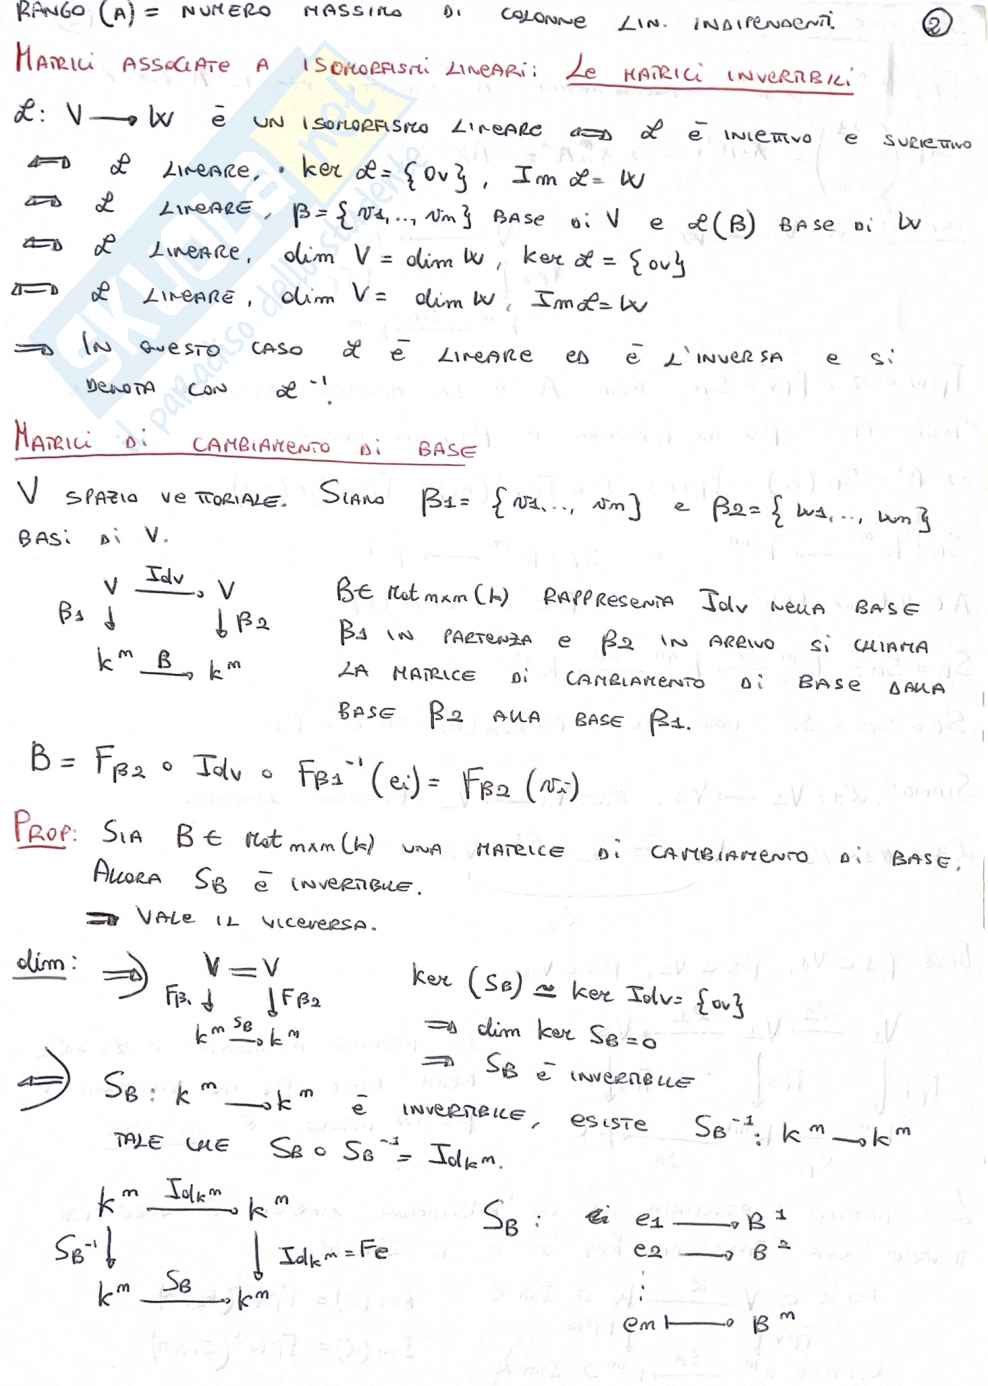 RANGO (A) = NUMERO MASSIMO DI COLONNE LIN. INDIPENDENTI. 2
MATRICI ASSOCIATE A ISOMORFISMI LINEARI: LE MATRICI INVERTIBILI
ℒ: V → W È UN ISOMORFISMO LINEARE ⟺ ℒ È INIETTIVO E SURIETTIVO
⟺ ℒ LINEARE, ker ℒ = {0v}, Im ℒ = W
⟺ ℒ LINEARE, β = {v1,.., vm} BASE Di V e ℒ(β) BASE Di W
⟺ ℒ LINEARE, dim V = dim W, ker ℒ = {0v}
⟺ ℒ LINEARE, dim V = dim W, Im ℒ = W
⟹ IN QUESTO CASO ℒ È LINEARE ED È L'INVERSA e Si
DENOTA CON ℒ⁻¹.
SKUOLA.net
il paradiso dello studente
MATRICI Di CAMBIAMENTO Di BASE
V SPAZIO VETTORIALE. SIANO β1 = {v1,.., vm} e β2 = {w1,.., wm}
BASI Di V.
V Idv → V
β1 ↓ ↓ β2
k^m B → k^m
B ∈ Mat mxm (k) RAPPRESENTA Idv NELLA BASE
β1 IN PARTENZA e β2 IN ARRIVO Si CHIAMA
LA MATRICE Di CAMBIAMENTO Di BASE DALLA
BASE β2 ALLA BASE β1.
B = Fβ2 ∘ Idv ∘ Fβ1⁻¹ (ei) = Fβ2 (vi)
PROP: SIA B ∈ Mat mxm (k) UNA MATRICE Di CAMBIAMENTO Di BASE.
ALLORA SB È INVERTIBILE.
⟹ VALE IL VICEVERSA.
dim: ⟹) V = V
Fβ1 ↓ ↓ Fβ2
k^m SB → k^m
ker (SB) ≃ ker Idv = {0v}
⟹ dim ker SB = 0
⟹ SB È INVERTIBILE
⟸) SB : k^m → k^m È INVERTIBILE, ESISTE SB⁻¹ : k^m → k^m
TALE CHE SB ∘ SB⁻¹ = Idk^m.
k^m Idk^m → k^m
SB⁻¹ ↓ ↓ Idk^m = Fe
k^m SB → k^m
SB : e1 → B^1
e2 → B^2
⋮
em ↦ B^m